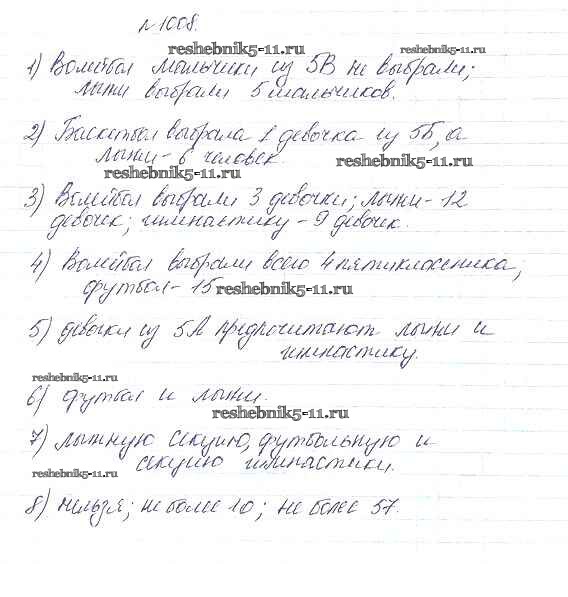 №1008.
reshebnik5-11.ru reshebnik5-11.ru
1) Волейбол мальчики из 5В не выбрали;
лыжи выбрали 5 мальчиков.
2) Баскетбол выбрала 1 девочка из 5Б, а
лыжи - 6 человек. reshebnik5-11.ru
reshebnik5-11.ru
3) Волейбол выбрали 3 девочки; лыжи - 12
девочек; гимнастику - 9 девочек.
4) Волейбол выбрали всего 4 пятиклассника;
футбол - 15 reshebnik5-11.ru
5) девочки из 5А предпочитают лыжи и
гимнастику.
reshebnik5-11.ru
6) футбол и лыжи.
reshebnik5-11.ru
7) лыжную секцию, футбольную и
секцию гимнастики.
reshebnik5-11.ru
8) нельзя; не более 10; не более 57.